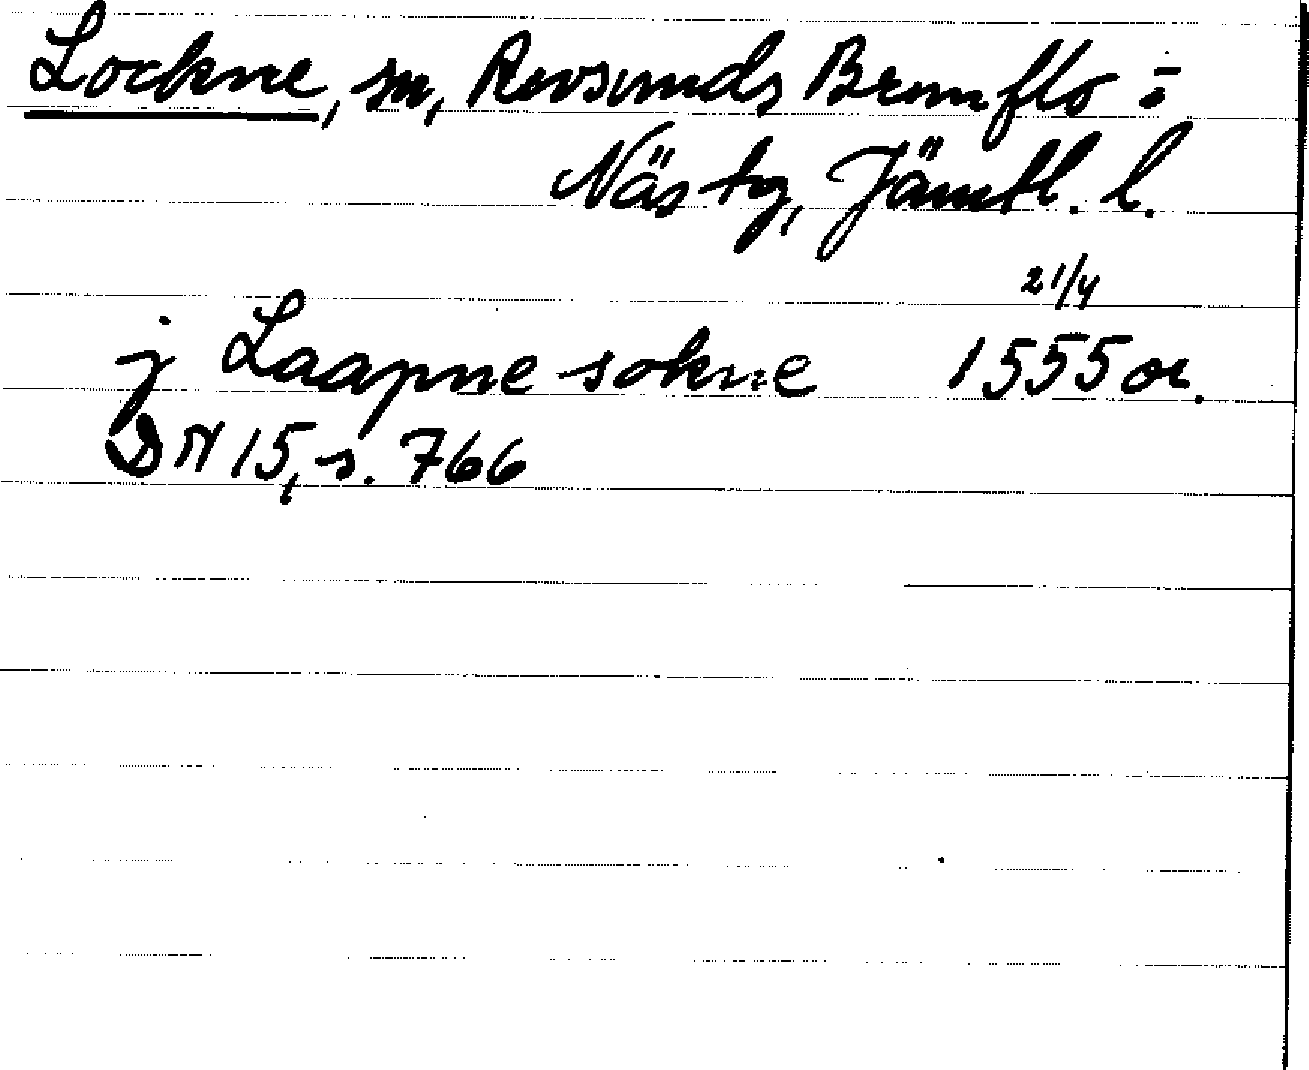 Lockne, sn, Revsunds Brunflo =
Näs tg, Jämtl. l.
21/4
j Laapne sokne 1555 or.
DN 15, s. 766